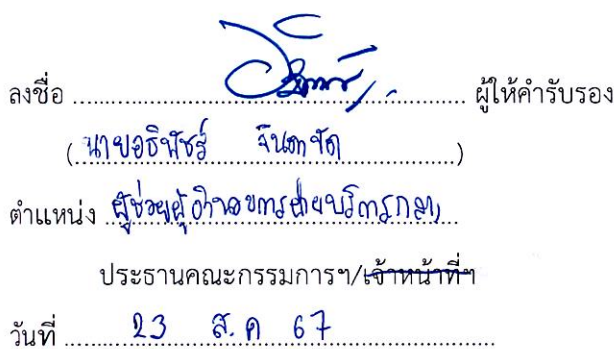 ลงชื่อ ........................ ผู้ให้คำรับรอง
(นายอธิพัชร์ จินดาขัด)
ตำแหน่ง ผู้ช่วยผู้อำนวยการฝ่ายบริการกลาง
ประธานคณะกรรมการฯ/เจ้าหน้าที่ฯ
วันที่ 23 ส.ค 67